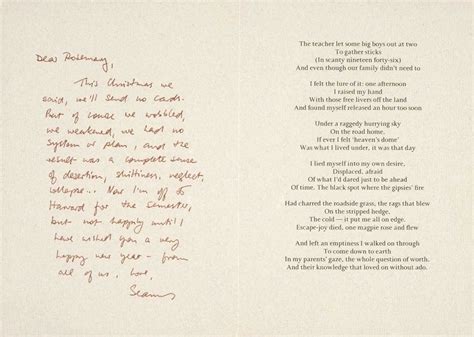 Dear Rosemary,
This Christmas we
said, we'll send no cards.
But of course we wobbled,
we weakened, we had no
system or plan, and the
result was a complete sense
of desertion, shittiness, neglect,
collapse... Now I'm off to
Harvard for the Semester,
but not happily until I
have wished you a very
happy new year - from
all of us. Love,
Seamus
The teacher let some big boys out at two
To gather sticks
(In scanty nineteen forty-six)
And even though our family didn't need to
I felt the lure of it: one afternoon
I raised my hand
With those free livers off the land
And found myself released an hour too soon
Under a raggedy hurrying sky
On the road home.
If ever I felt 'heaven's dome'
Was what I lived under, it was that day
I lied myself into my own desire,
Displaced, afraid
Of what I'd dared to just be ahead
Of time. The black spot where the gipsies' fire
Had charred the roadside grass, the rags that blew
On the stripped hedge,
The cold — it put me all on edge.
Escape-joy died, one magpie rose and flew
And left an emptiness I walked on through
To come down to earth
In my parents' gaze, the whole question of worth.
And their knowledge that loved on without ado.